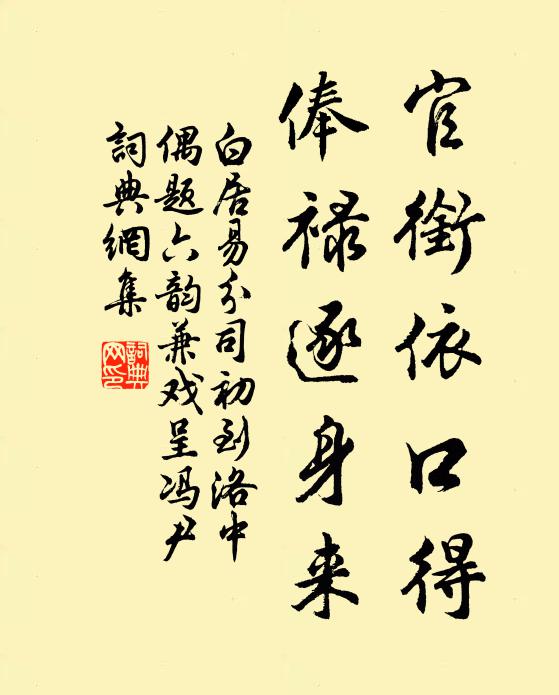 官銜依口得
俸禄逐身来
白居易分司初到洛中
偶题六韵兼戏呈冯尹
詞典網集
詞典網印